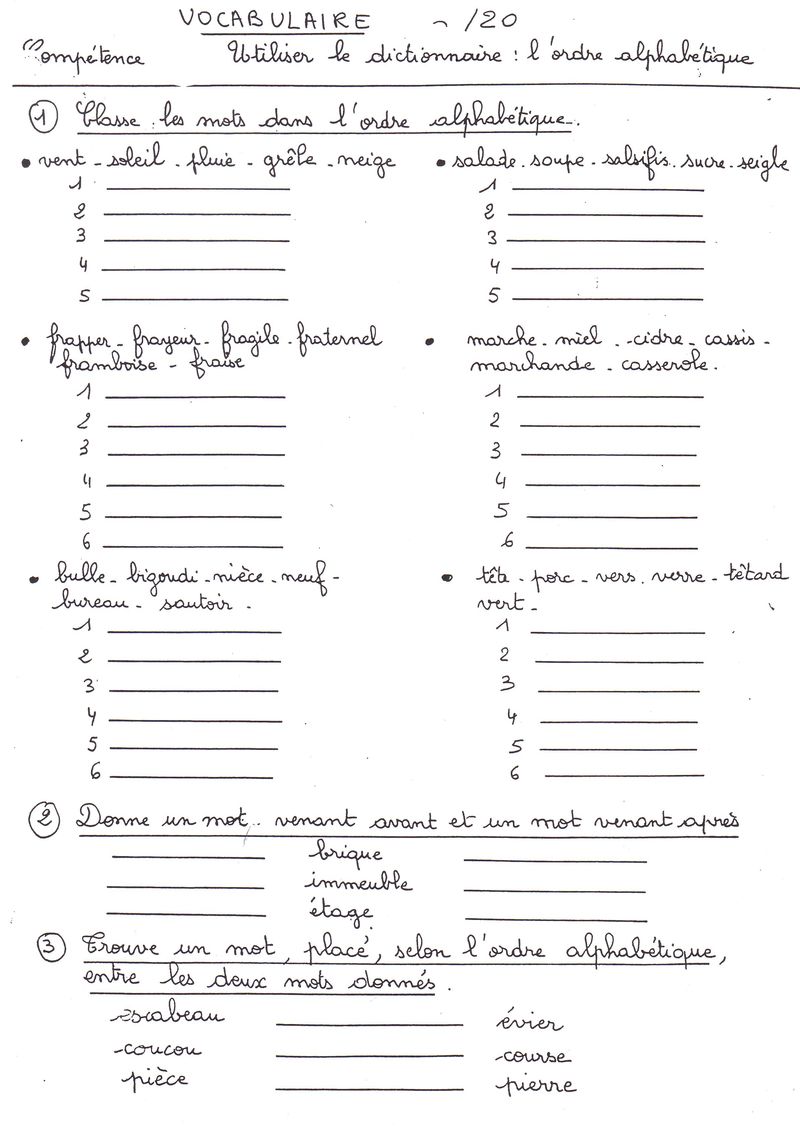 VOCABULAIRE /20
Compétence Utiliser le dictionnaire : l'ordre alphabétique
① Classe les mots dans l'ordre alphabétique.
• vent - soleil - pluie - grêle - neige
1
2
3
4
5
• salade - soupe - salsifis - sucre - seigle
1
2
3
4
5
• frapper - frayeur - fragile - fraternel
framboise - fraise
1
2
3
4
5
6
• marche - miel - cidre - cassis -
marchande - casserole.
1
2
3
4
5
6
• bulle - bigoudi - nièce - neuf -
bureau - sautoir.
1
2
3
4
5
6
• tête - porc - vers - verre - têtard
vert -
1
2
3
4
5
6
② Donne un mot venant avant et un mot venant après
brique
immeuble
étage
③ Trouve un mot, placé, selon l'ordre alphabétique,
entre les deux mots donnés.
escabeau évier
coucou course
pièce pierre